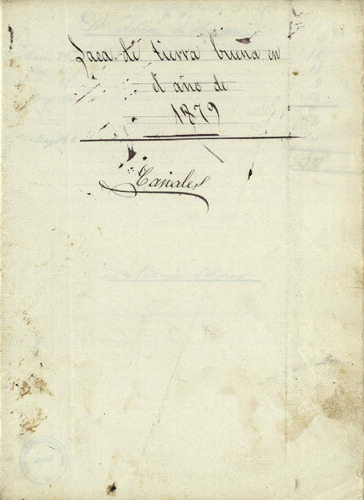 Saca de tierra buena en
el año de
1879
Canales